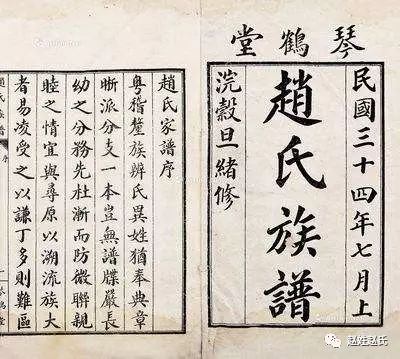 琴鶴堂
民國三十四年七月上
浣穀旦緒修
趙氏族譜
趙氏家譜序
粵稽釐族辨氏異姓猶奉典章
晣派分支一本豈無譜牒嚴長
幼之分務先杜漸而防微聯親
睦之情宜與尋原以溯流族大
者易凌受之以謙丁多則難區
趙氏族譜
序
一
赵姓赵氏